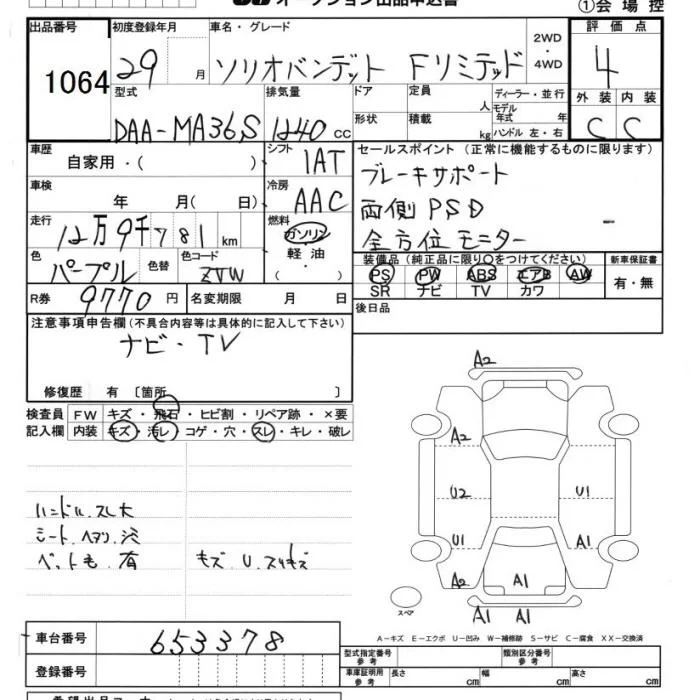 オークション出品申込書
①会場控
出品番号 初度登録年月 車名・グレード 2WD・4WD 評価点
1064 29 月 ソリオバンデット Fリミテッド 4
型式 排気量 ドア 定員 人 ディーラー・並行 外装 内装
DAA-MA36S 1240 cc 形状 積載 kg モデル年式 年 ハンドル 左・右 C C
車歴 シフト セールスポイント (正常に機能するものに限ります)
自家用・( ) IAT ブレーキサポート
車検 冷房 両側PSD
年 月( 日) AAC 全方位モニター
走行 燃料
12万9千781km ガソリン
軽油
色 色替 色コード
パープル ZVW
装備品 (純正品に限り○をつけてください) 新車保証書
PS PW ABS エアB AW 有・無
SR ナビ TV カワ
R券 9770円 名変期限 月 日
後日品
注意事項申告欄(不具合内容等は具体的に記入して下さい)
ナビ・TV
修復歴 有 〔箇所 〕
検査員 FW キズ・飛石・ヒビ割・リペア跡・×要
記入欄 内装 キズ・汚レ・コゲ・穴・スレ・キレ・破レ
ハンドル.スレ大
シート.ヘタリ.
ペット毛.有 キズ.U.スリキズ
A2
A2
U2 U1
U1 A1
A2 A1
A1 A1
スペア
A-キズ E-エクボ U-凹み W-補修跡 S-サビ C-腐食 XX-交換済
車台番号 653378
登録番号
型式指定番号 参考 類別区分番号 参考
車庫証明用 参考 長さ cm 幅 cm 高さ cm
希望出品コーナー